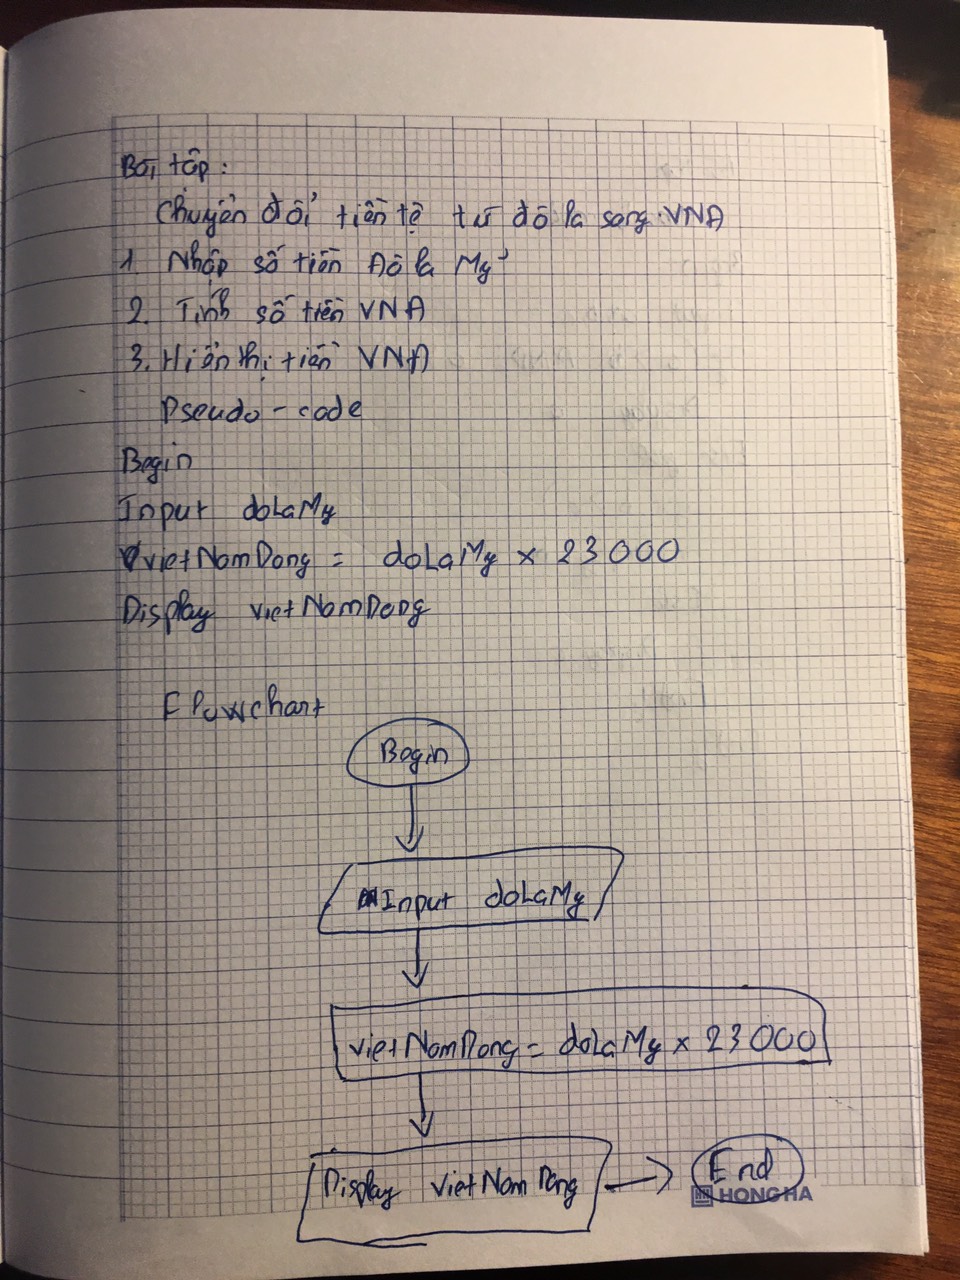 Bài tập:
Chuyển đổi tiền tệ từ đô la sang VNĐ
1. Nhập số tiền Đô la Mỹ
2. Tính số tiền VNĐ
3. Hiển thị tiền VNĐ
Pseudo-code
Begin
Input doLaMy
vietNamDong = doLaMy x 23000
Display vietNamDong
Flowchart
Begin
Input doLaMy
vietNamDong = doLaMy x 23000
Display vietNamDong
End
HONG HA